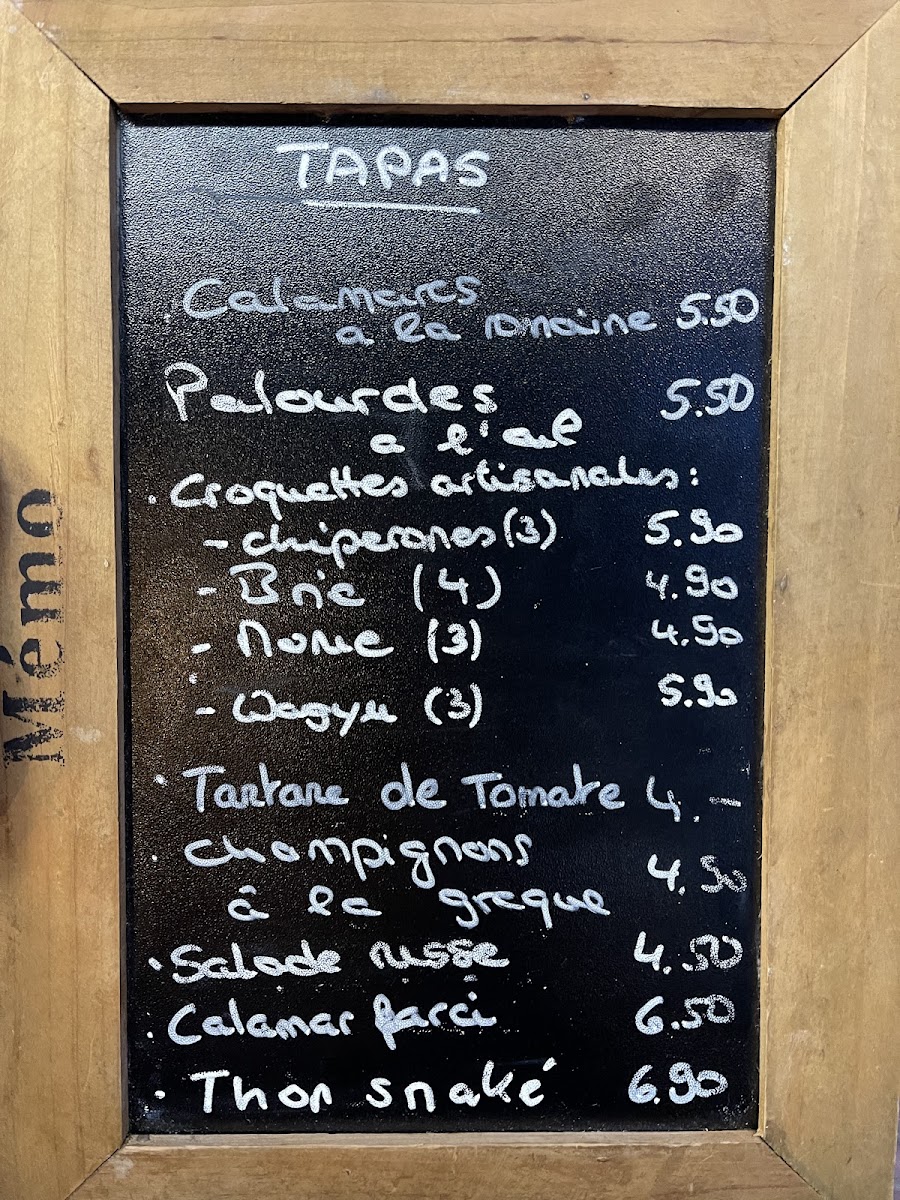 Mémo
TAPAS
. Calamares
a la romaine 5.50
Palourdes 5.50
a l'ail
. Croquettes artisanales:
- chiperones (3) 5.90
- Brie (4) 4.90
- Morue (3) 4.50
- Wagyu (3) 5.90
. Tartare de Tomate 4.-
. champignons
à la greque 4.50
. Salade russe 4.50
. Calamar farci 6.50
. Thon snaké 6.90